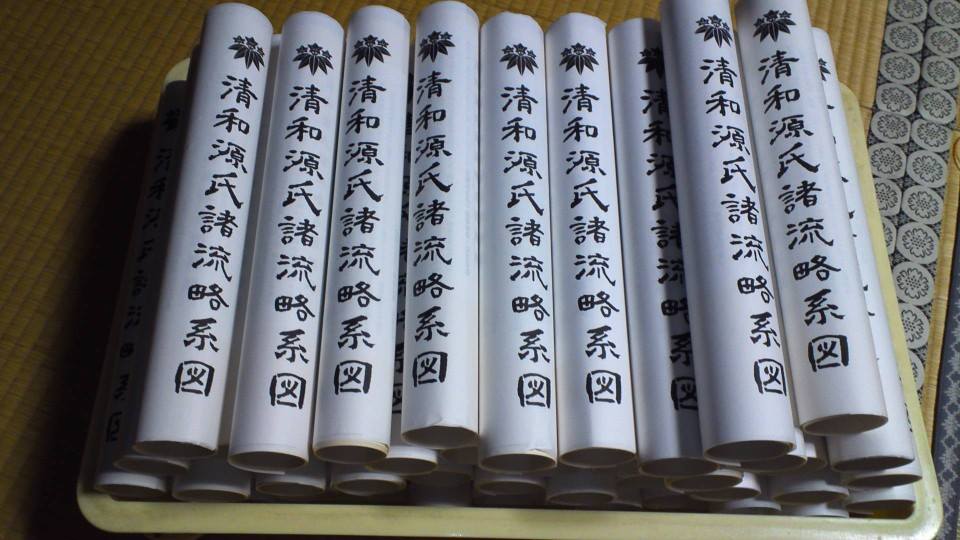 清和源氏諸流略系図
清和源氏諸流略系図
清和源氏諸流略系図
清和源氏諸流略系図
清和源氏諸流略系図
清和源氏諸流略系図
清和源氏諸流略系図
清和源氏諸流略系図
清和源氏諸流略系図